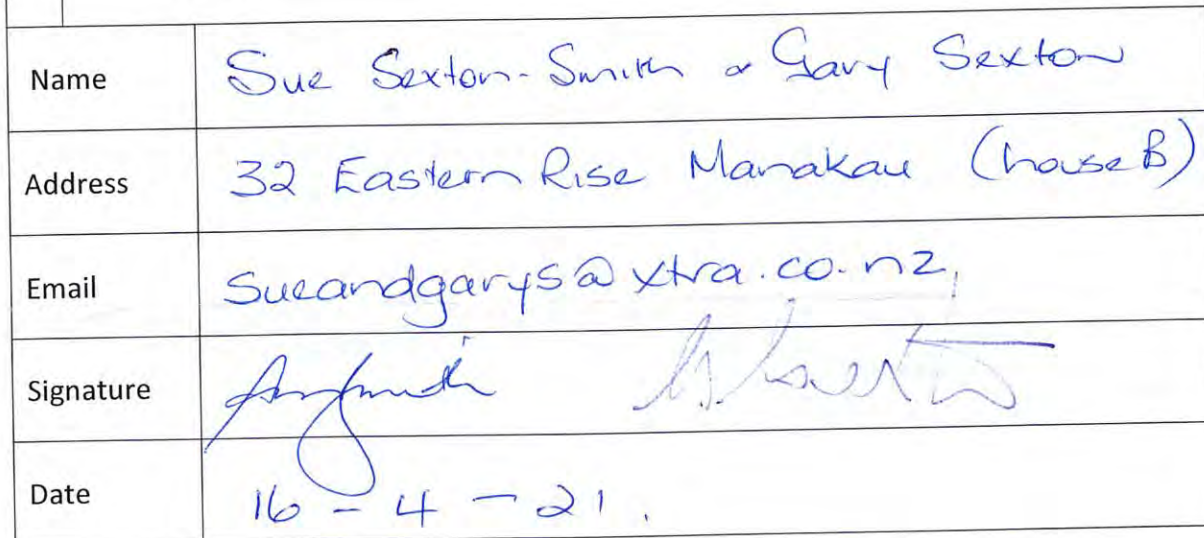 Name Sue Sexton-Smith & Gary Sexton
Address 32 Eastern Rise Manakau (house B)
Email sueandgarys@xtra.co.nz
Signature
Date 16-4-21.